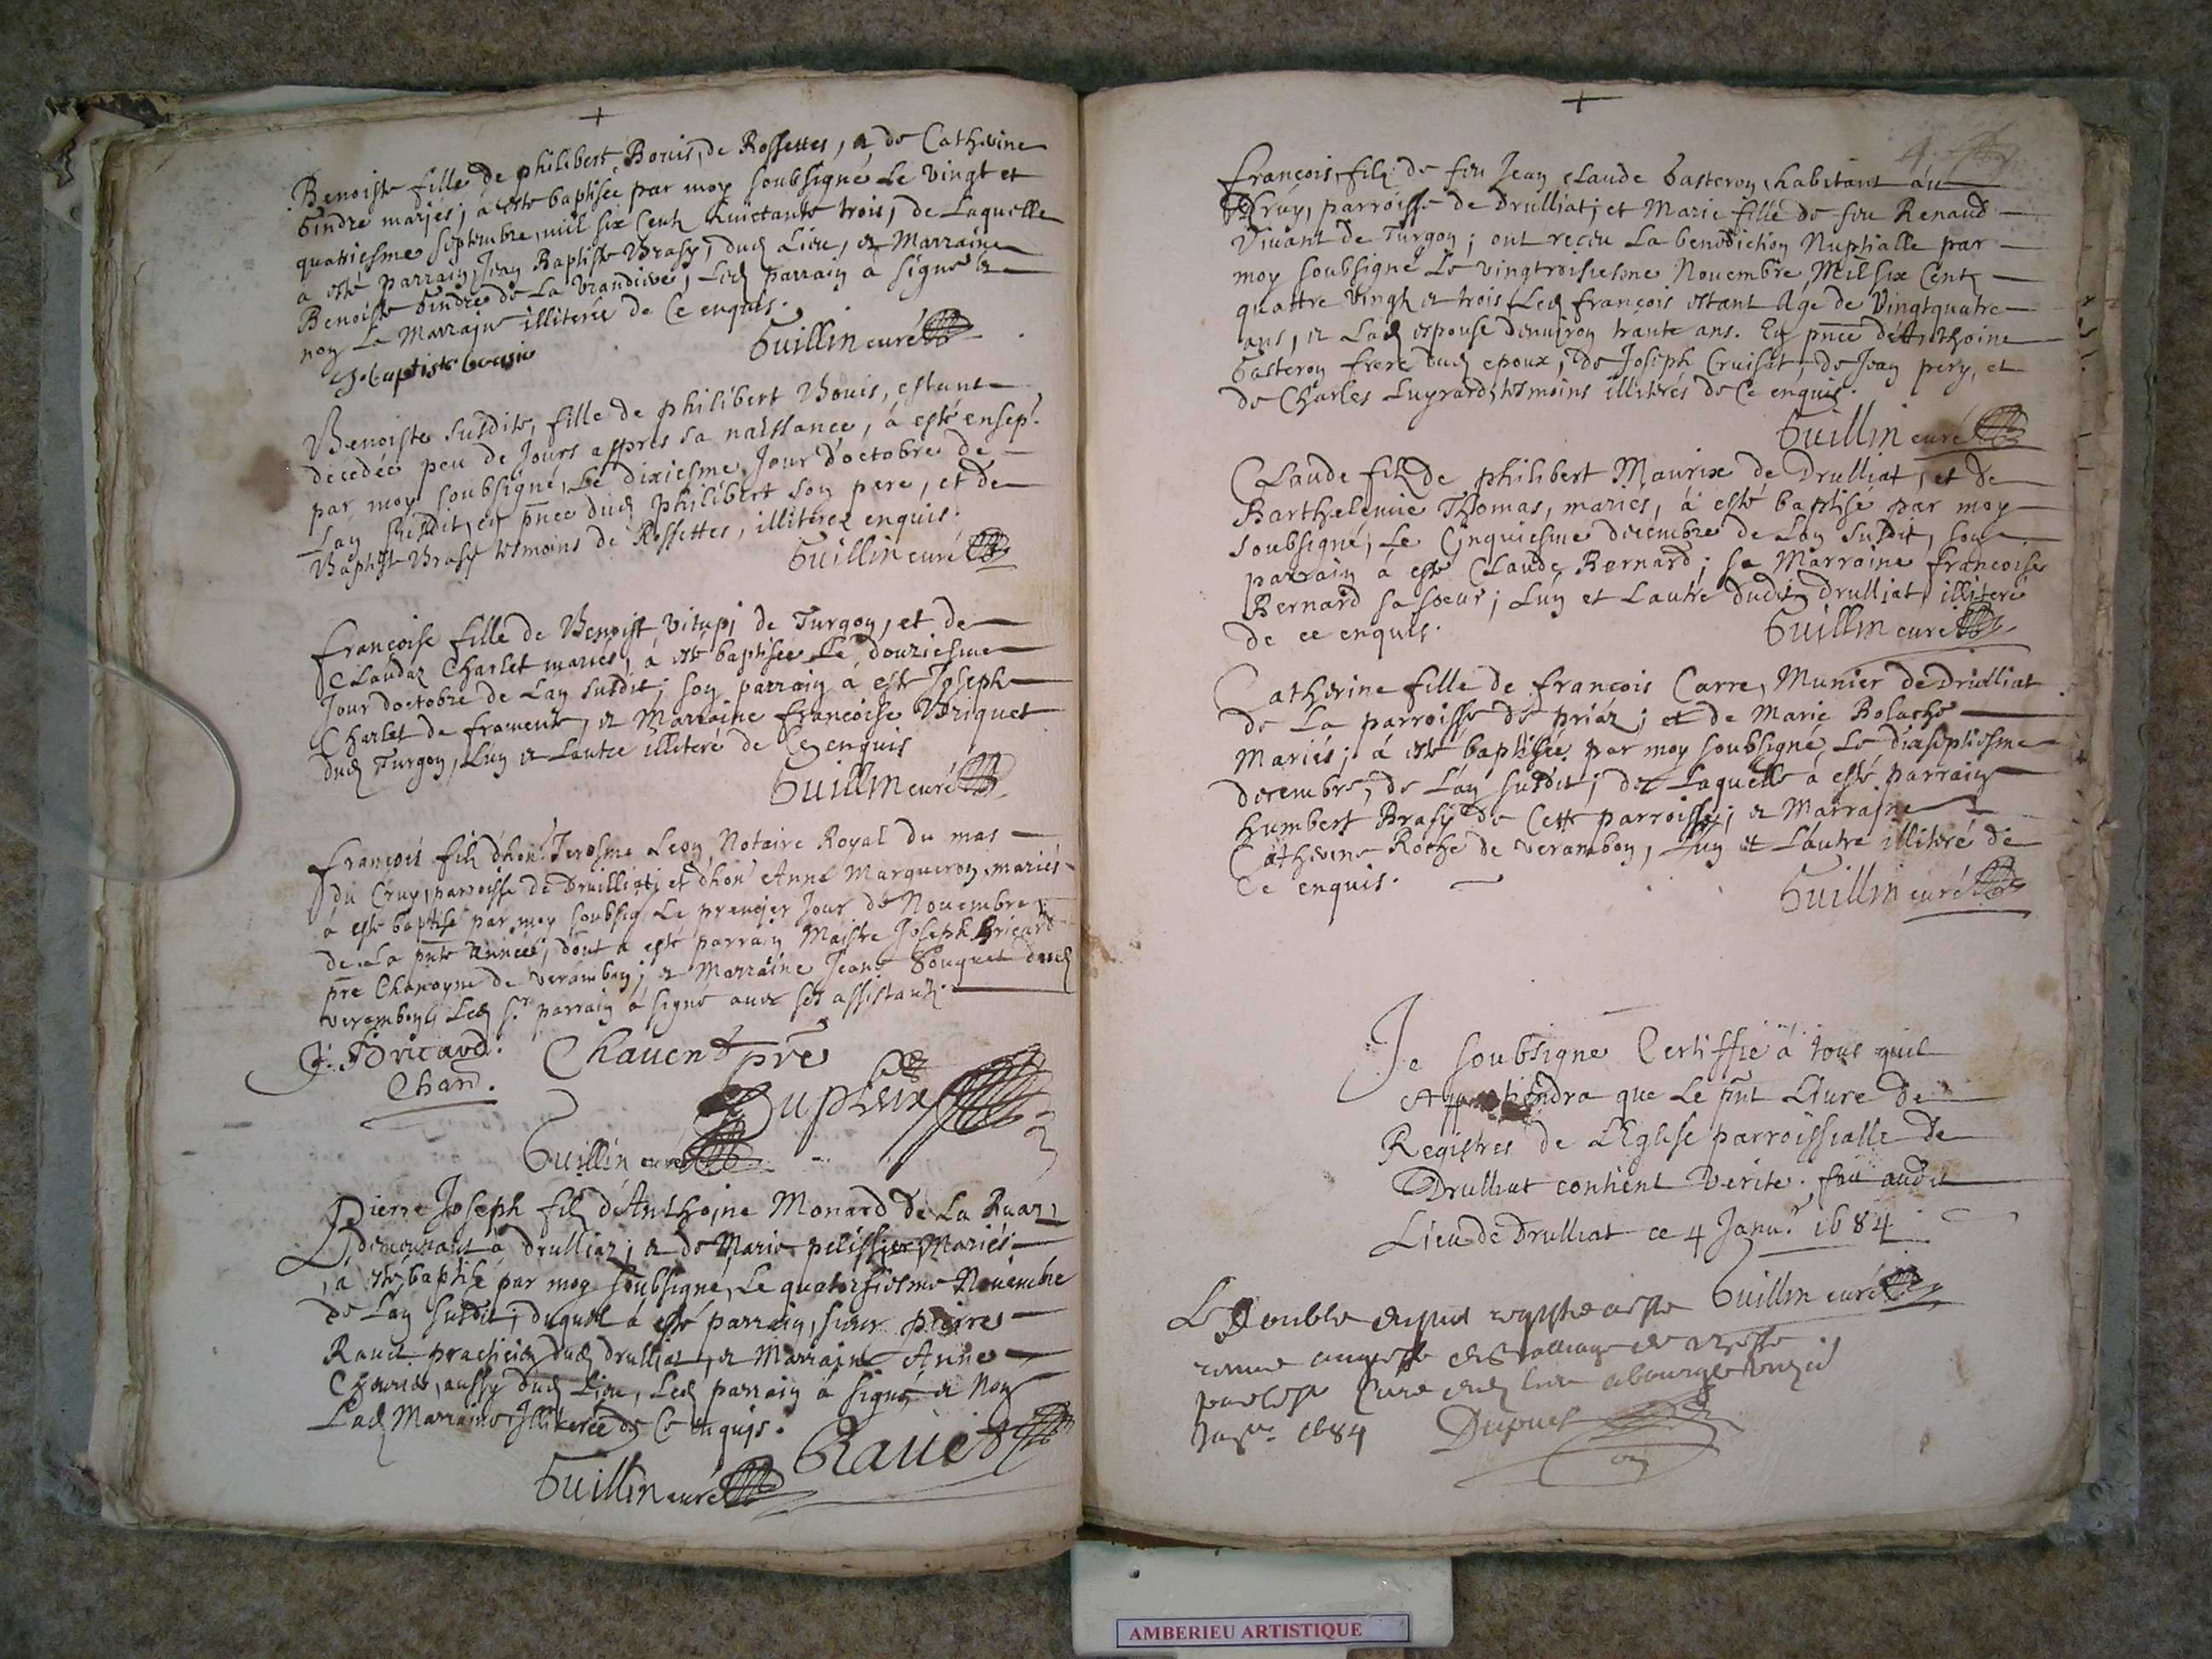 +
Benoiste fille de philibert Bouis, de Rossettes, & de Catherine
Gindre mariés; à esté baptisée par moy soubsigné Le vingt et
quatriesme septembre, mil six Centz huictante trois, de Laquelle
a esté parrain, Jean Baptiste Brasy, dud Lieu, & Marraine
Benoiste Gindre de La ; Led parrain à signé &
non La Marraine illiterée de Ce enquis.
Guillin curé
J. baptiste
Benoiste susdite, fille de philibert Bouis, estant
decedée peu de Jours appres sa naissance, à esté ensep.
par moy soubsigné, Le dixiesme Jour doctobre de
Lan susdit, en pnce dud philibert son pere, et de
Baptiste Brasy tesmoins de Rossettes, illiterez enquis.
Guillin curé
françoise fille de Benoist vitupi de Turgon, et de
Claudaz Charlet mariés, à esté baptisée Le douziesme
Jour doctobre de Lan susdit; son parrain à esté Joseph
Charlet de froment, & Marraine françoise Briquet
dud Turgon, Lun & Lautre illiteré de Ce enquis
Guillin curé
françois filz dhon. Jerosme Leon Notaire Royal du mas
du Cruy, parroisse de Druilliat; et dhon. Anne Marqueron, mariés
à esté baptisé par moy soubsig. Le premier Jour de Nouembre
de La pnte Année; dont a esté parrain Maistre Joseph Bricard
pre Chanoyne de verambon; & Marraine Jeane Gouguet dud
verambon, Led sr. parrain à signé auec ses assistantz.
J. Bricard. Chauent pre
Chan.
Dupleix
Guillin curé
Pierre Joseph filz d'Anthoine Monard de La Ruaz
demeurant à drulliaz; & de Marie pelissier, Mariés
, a esté baptisé par moy soubsigné, Le quatorsiesme Nouembre
de Lan susdit; duquel à esté parrain, sieur pierre
Rauet praticien dud drulliat, & Marraine Anne
, aussy dud Lieu, Led parrain à signé & Non
Lad Marraine, Illiterée de Ce enquis.
Rauet
Guillin curé
+
4.
françois, filz de feu Jean Claude Gasteron, habitant au
Cruy, parroisse de Drulliat; et Marie fille de feu Renaud
Viuant de Turgon; ont receu La benediction Nuptialle par
moy soubsigné Le vingtroisiesme Nouembre, Mil six Centz
quattre vingtz & trois, Led françois estant Agé de Vingtquatre
ans, & Lad espouse denuiron trante ans. En pnce de Anthoine
Gasteron frere dud epoux, de Joseph Cruisat, de Jean pery, et
de Charles Luyrard, tesmoins illiterés de Ce enquis.
Guillin curé
Claude filz de philibert Maurix de Drulliat, et de
Barthelemie Thomas, mariés, à esté baptisé par moy
soubsigné, Le Cinquiesme decembre de Lan susdit, son
parrain à esté Claude Bernard; sa Marraine francoise
Bernard sa soeur; Lun et Lautre dudit drulliat, illiteré
de ce enquis.
Guillin curé
Catherine fille de francois Carre, Munier de Drulliat
de La parroisse de priaz; et de Marie Bolache
Mariés; à esté baptisée par moy soubsigné, Le dixseptiesme
decembre, de Lan susdit; de Laquelle à esté parrain
humbert Brasy de Cette parroisse; & Marraine
Catherine Roche de verambon, Lun et Lautre illiteré de
Ce enquis.
Guillin curé
Je soubsigne Certiffie à tous quil
Appartiendra que Le pnt Liure de
Registres de L'Eglise parroissialle de
Drulliat contient Verite. fait audit
Lieu de Drulliat ce 4 Janu.r 1684
Guillin curé
Le Double du pnt registre a esté
remis au greffe du Balliage de Bresse
par Curé dud lieu a bourg le
Janv. 1684 Dupuet
AMBERIEU ARTISTIQUE